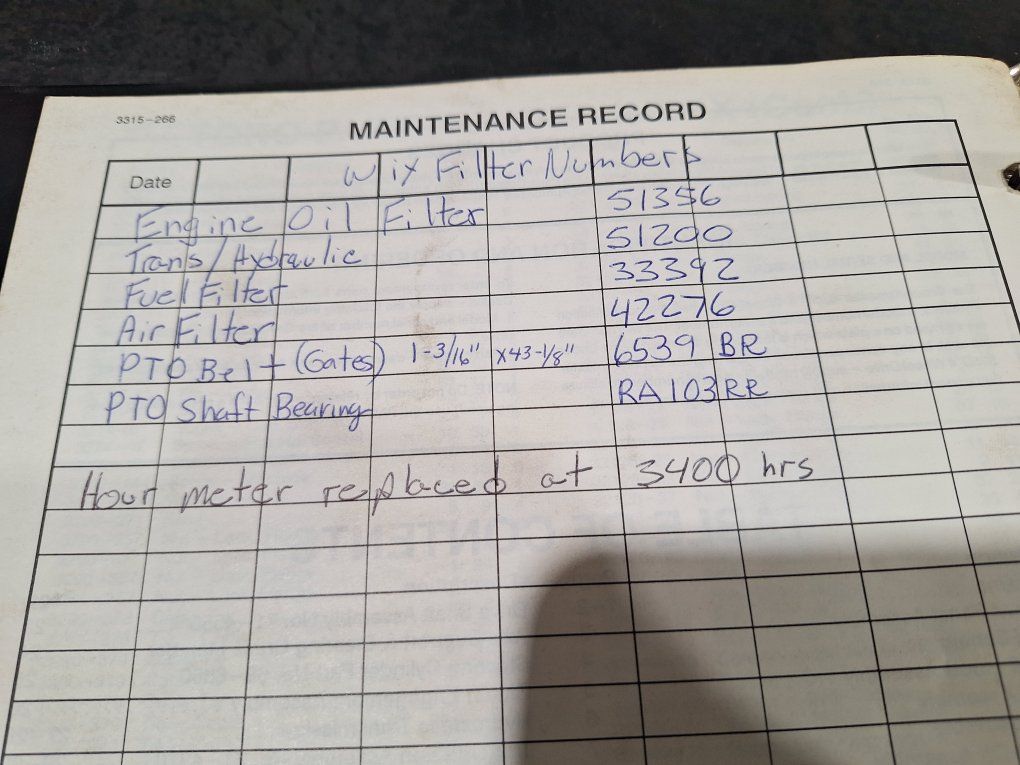 3315-266
MAINTENANCE RECORD
Date Wix Filter Numbers
Engine Oil Filter 51356
Trans/Hydraulic 51200
Fuel Filter 33392
Air Filter 42276
PTO Belt (Gates) 1-3/16" x43-1/8" 6539 BR
PTO Shaft Bearing RA103RR
Hour meter replaced at 3400 hrs